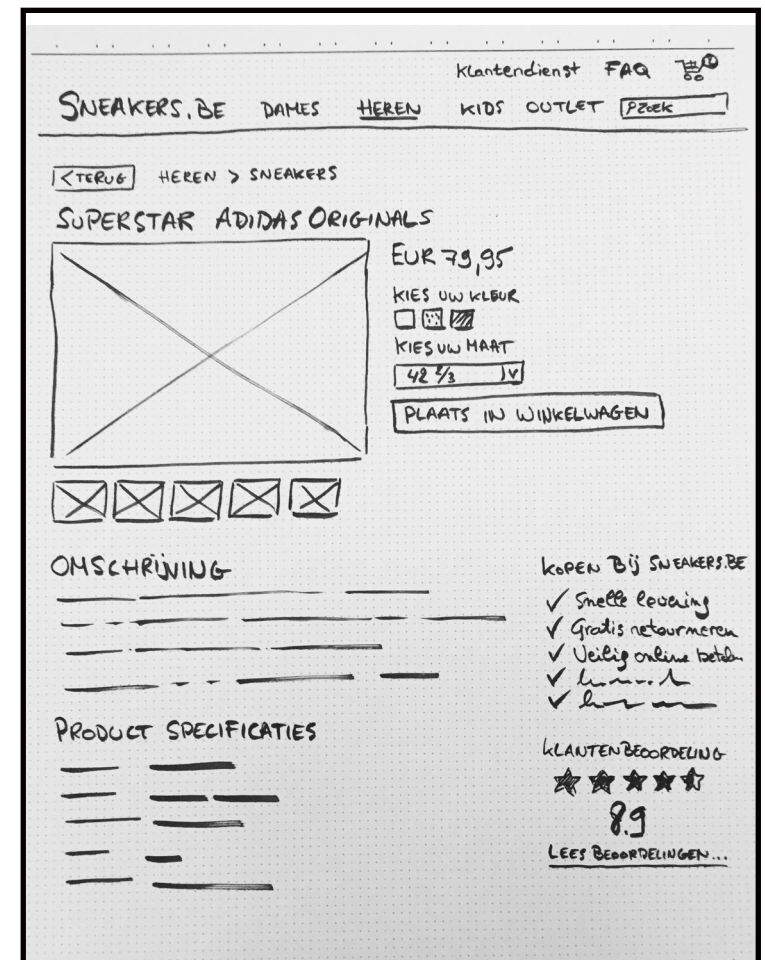 Klantendienst FAQ
SNEAKERS.BE DAMES HEREN KIDS OUTLET ZOEK
< TERUG HEREN > SNEAKERS
SUPERSTAR ADIDAS ORIGINALS
EUR 79,95
KIES UW KLEUR
KIES UW MAAT
42 2/3 v
PLAATS IN WINKELWAGEN
OMSCHRIJVING
PRODUCT SPECIFICATIES
KOPEN Bij SNEAKERS.BE
✓ Snelle levering
✓ Gratis retourneren
✓ Veilig online betalen
✓
✓
KLANTENBEOORDELING
8.9
LEES BEOORDELINGEN...